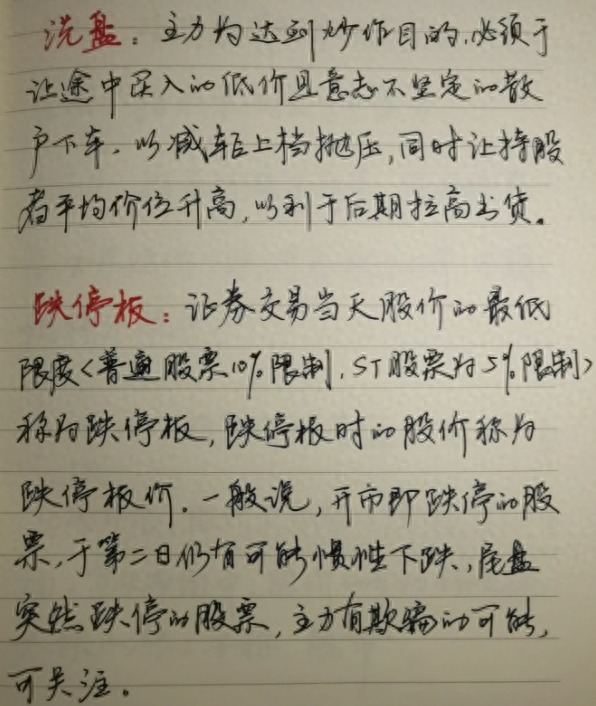 洗盘：主力为达到炒作目的,必须于
让途中买入的低价且意志不坚定的散
户下车.以减轻上档抛压,同时让持股
者平均价位升高,以利于后期拉高出货。
跌停板：证券交易当天股价的最低
限度<普通股票10%限制.ST股票为5%限制>
称为跌停板,跌停板时的股价称为
跌停板价.一般说,开市即跌停的股
票,于第二日仍有可能惯性下跌,尾盘
突然跌停的股票,主力有欺骗的可能,
可关注。